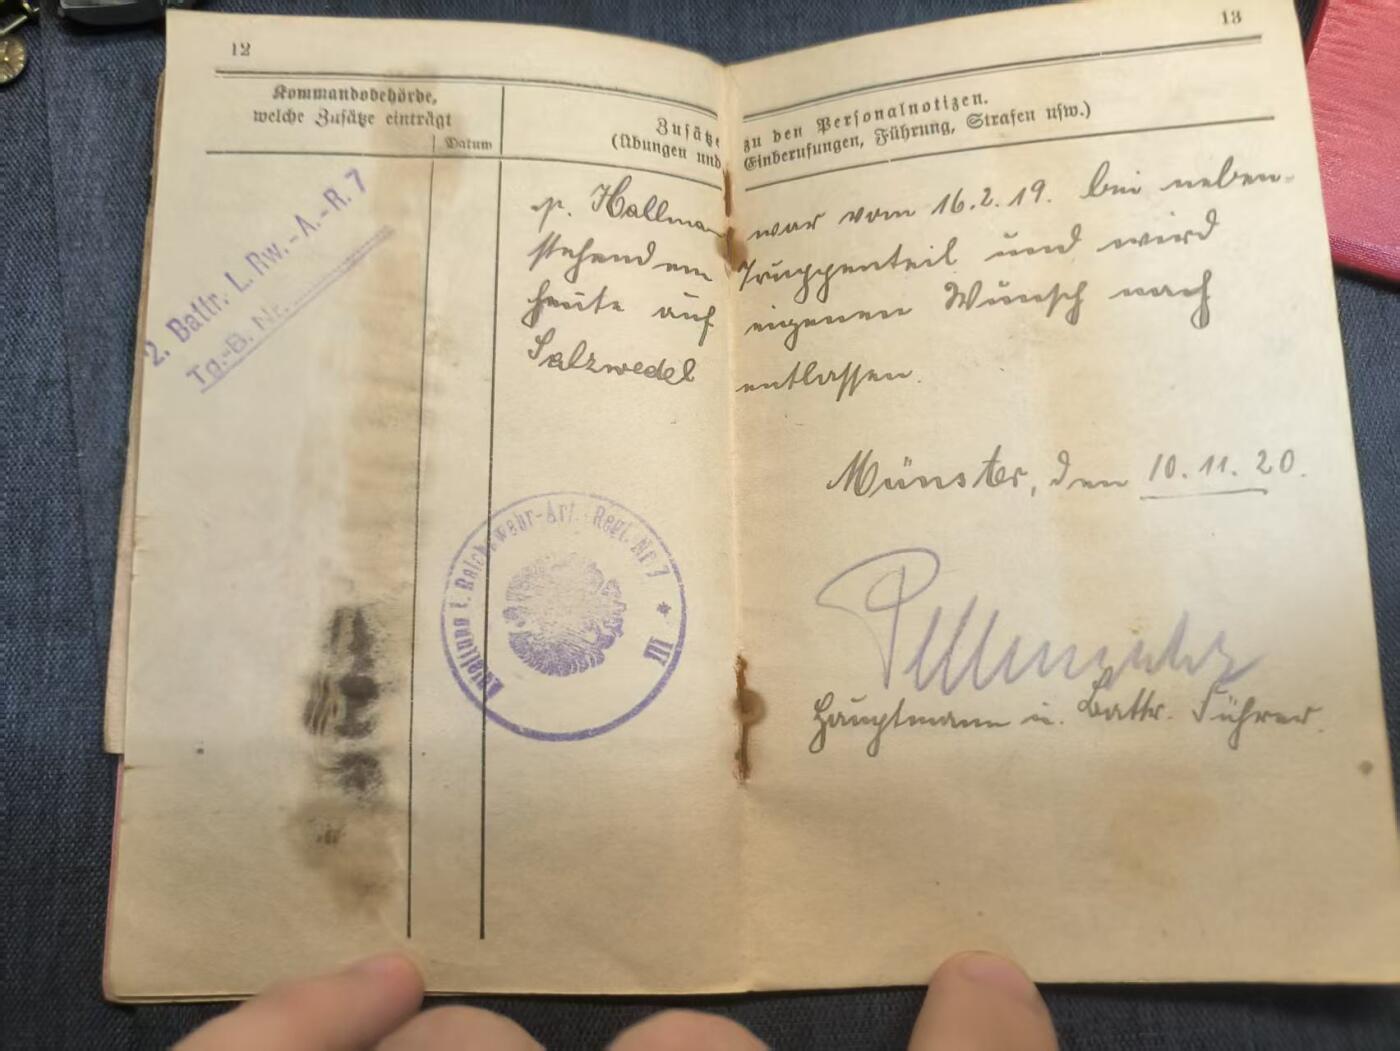 12
13
Kommandobehörde,
welche Zusätze einträgt
Datum
Zusätze zu den Personalnotizen.
(Übungen und Einberufungen, Führung, Strafen usw.)
2. Battr. L. Rw.-A.-R. 7
Tg.-B. Nr.
p. Hallmann war vom 16.2.19. bei neben-
stehendem Truppenteil und wird
heute auf eigenen Wunsch nach
Salzwedel entlassen.
Münster, den 10.11.20.
Abteilung l. Reichswehr-Art.-Regt. Nr 7 * III
Hauptmann u. Battr. Führer.